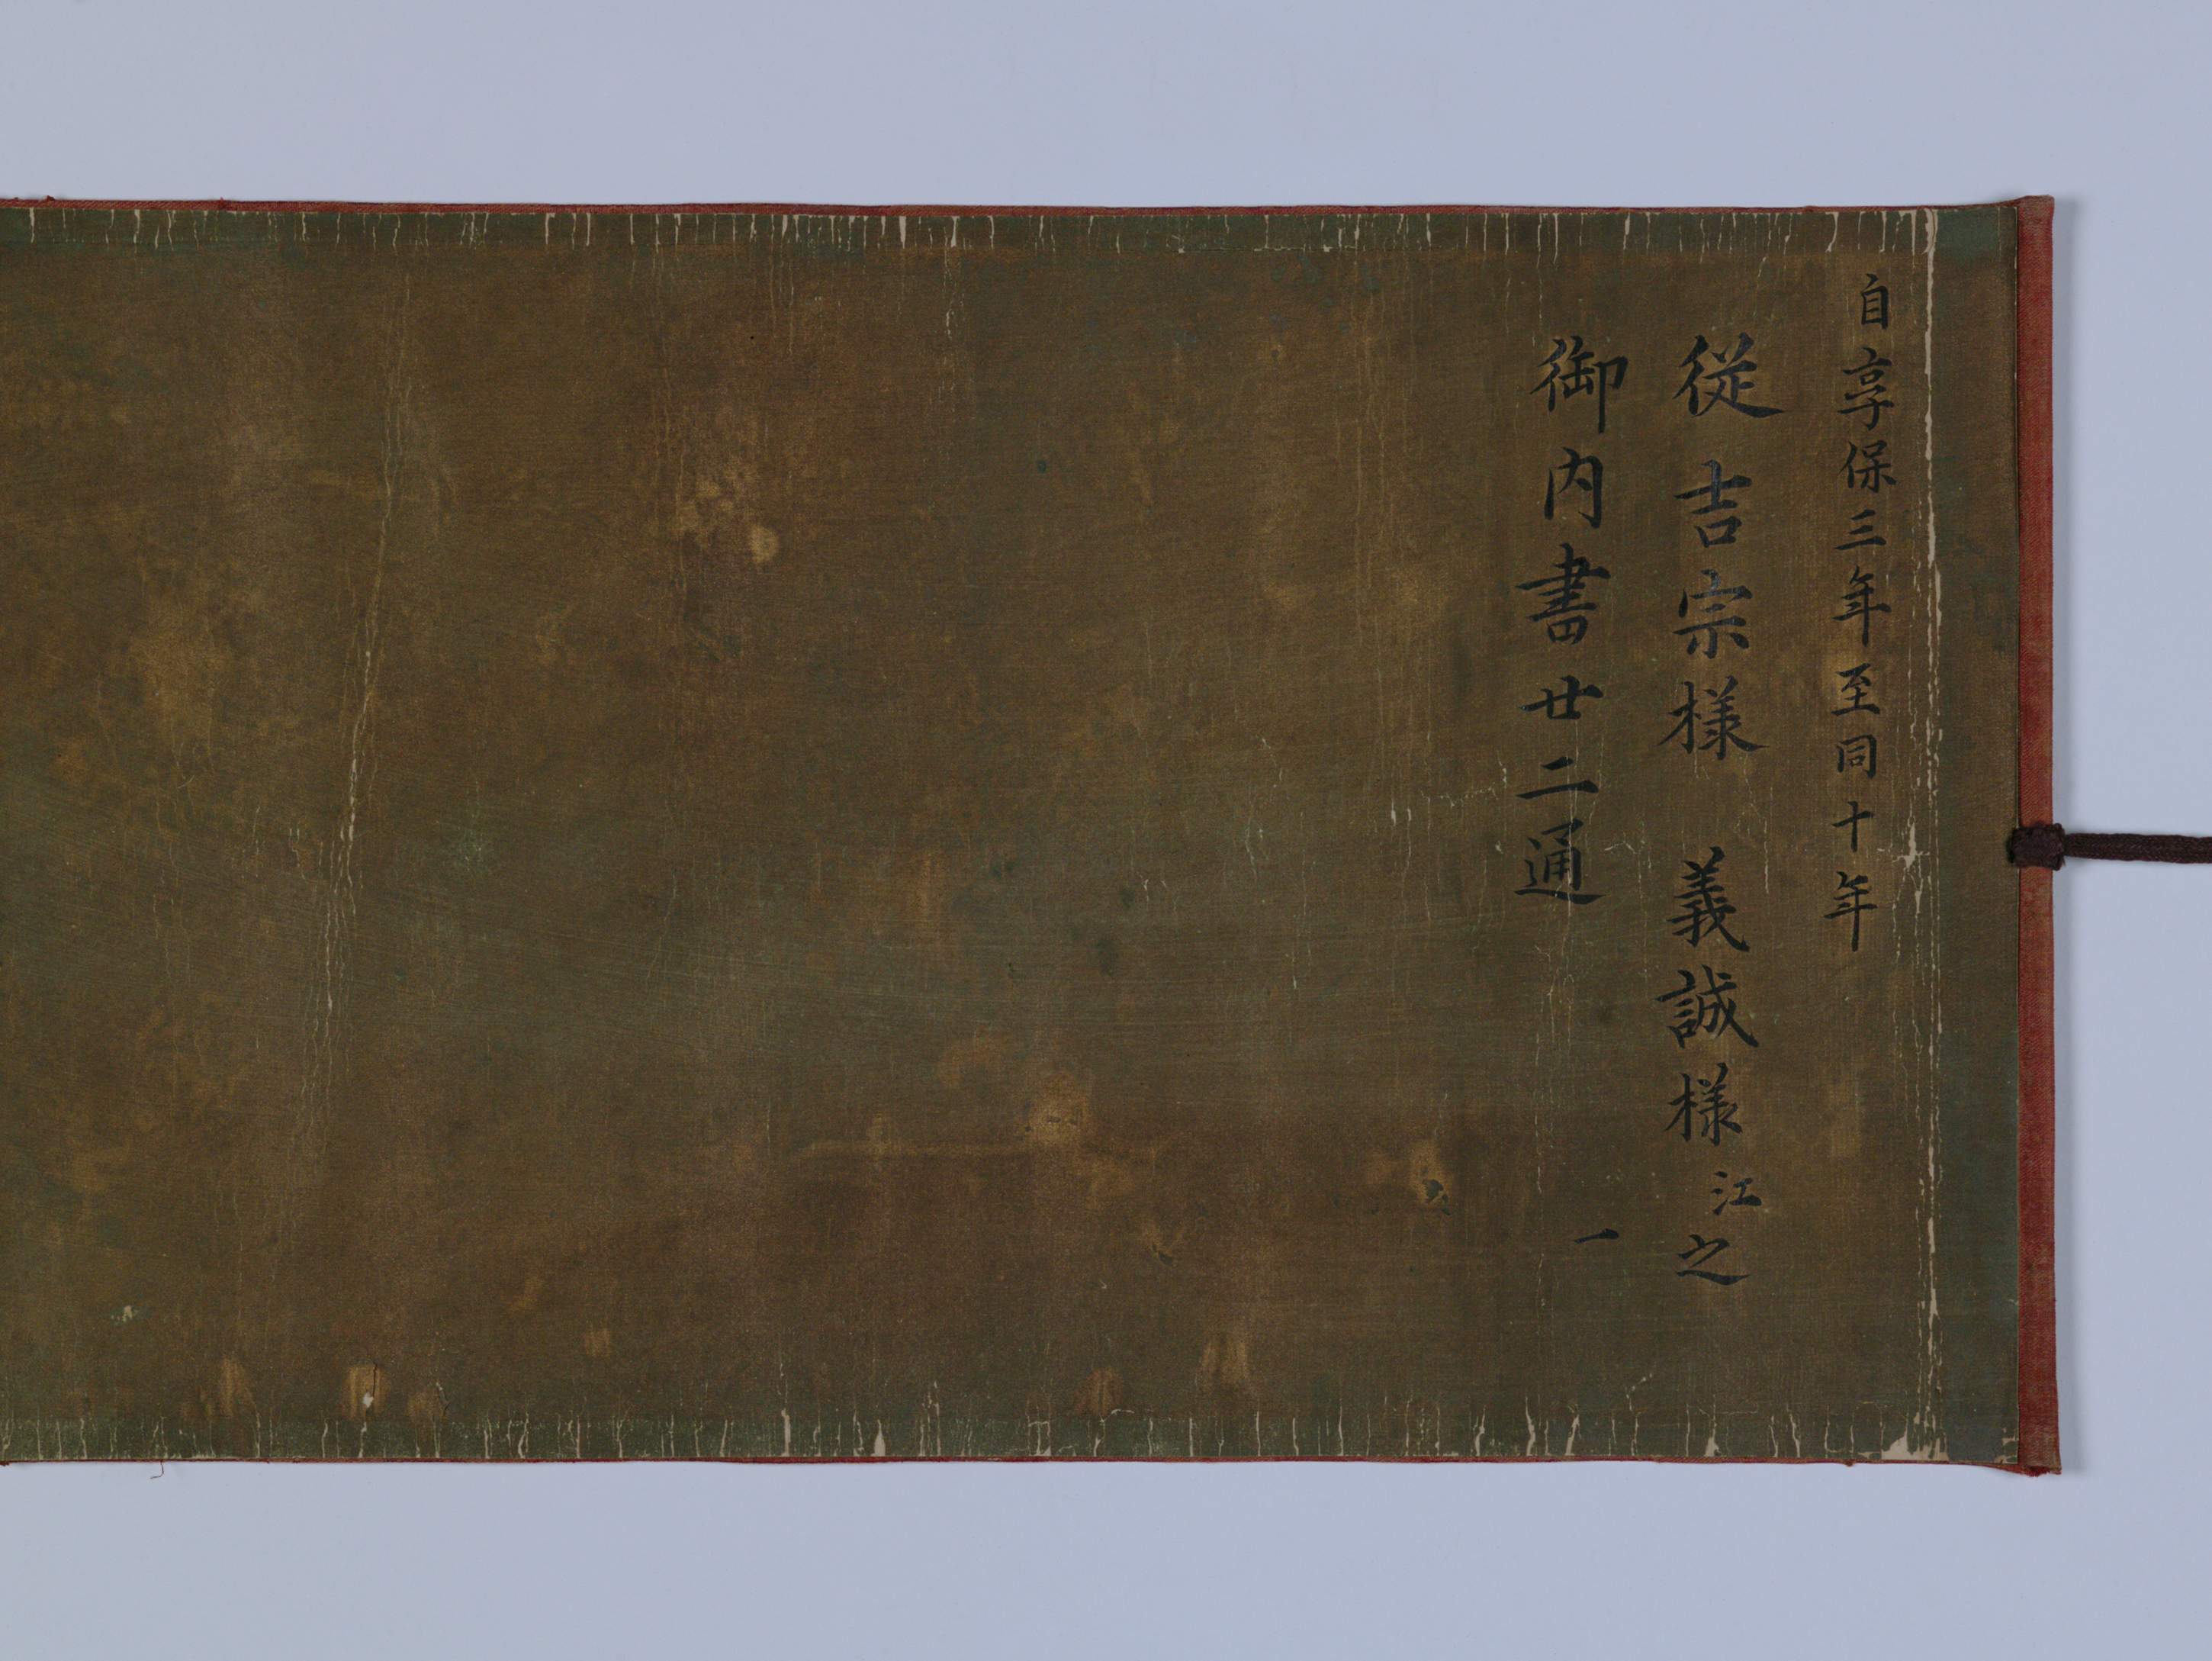 自享保三年至同十年
従吉宗様 義誠様江之
御内書廿二通 一